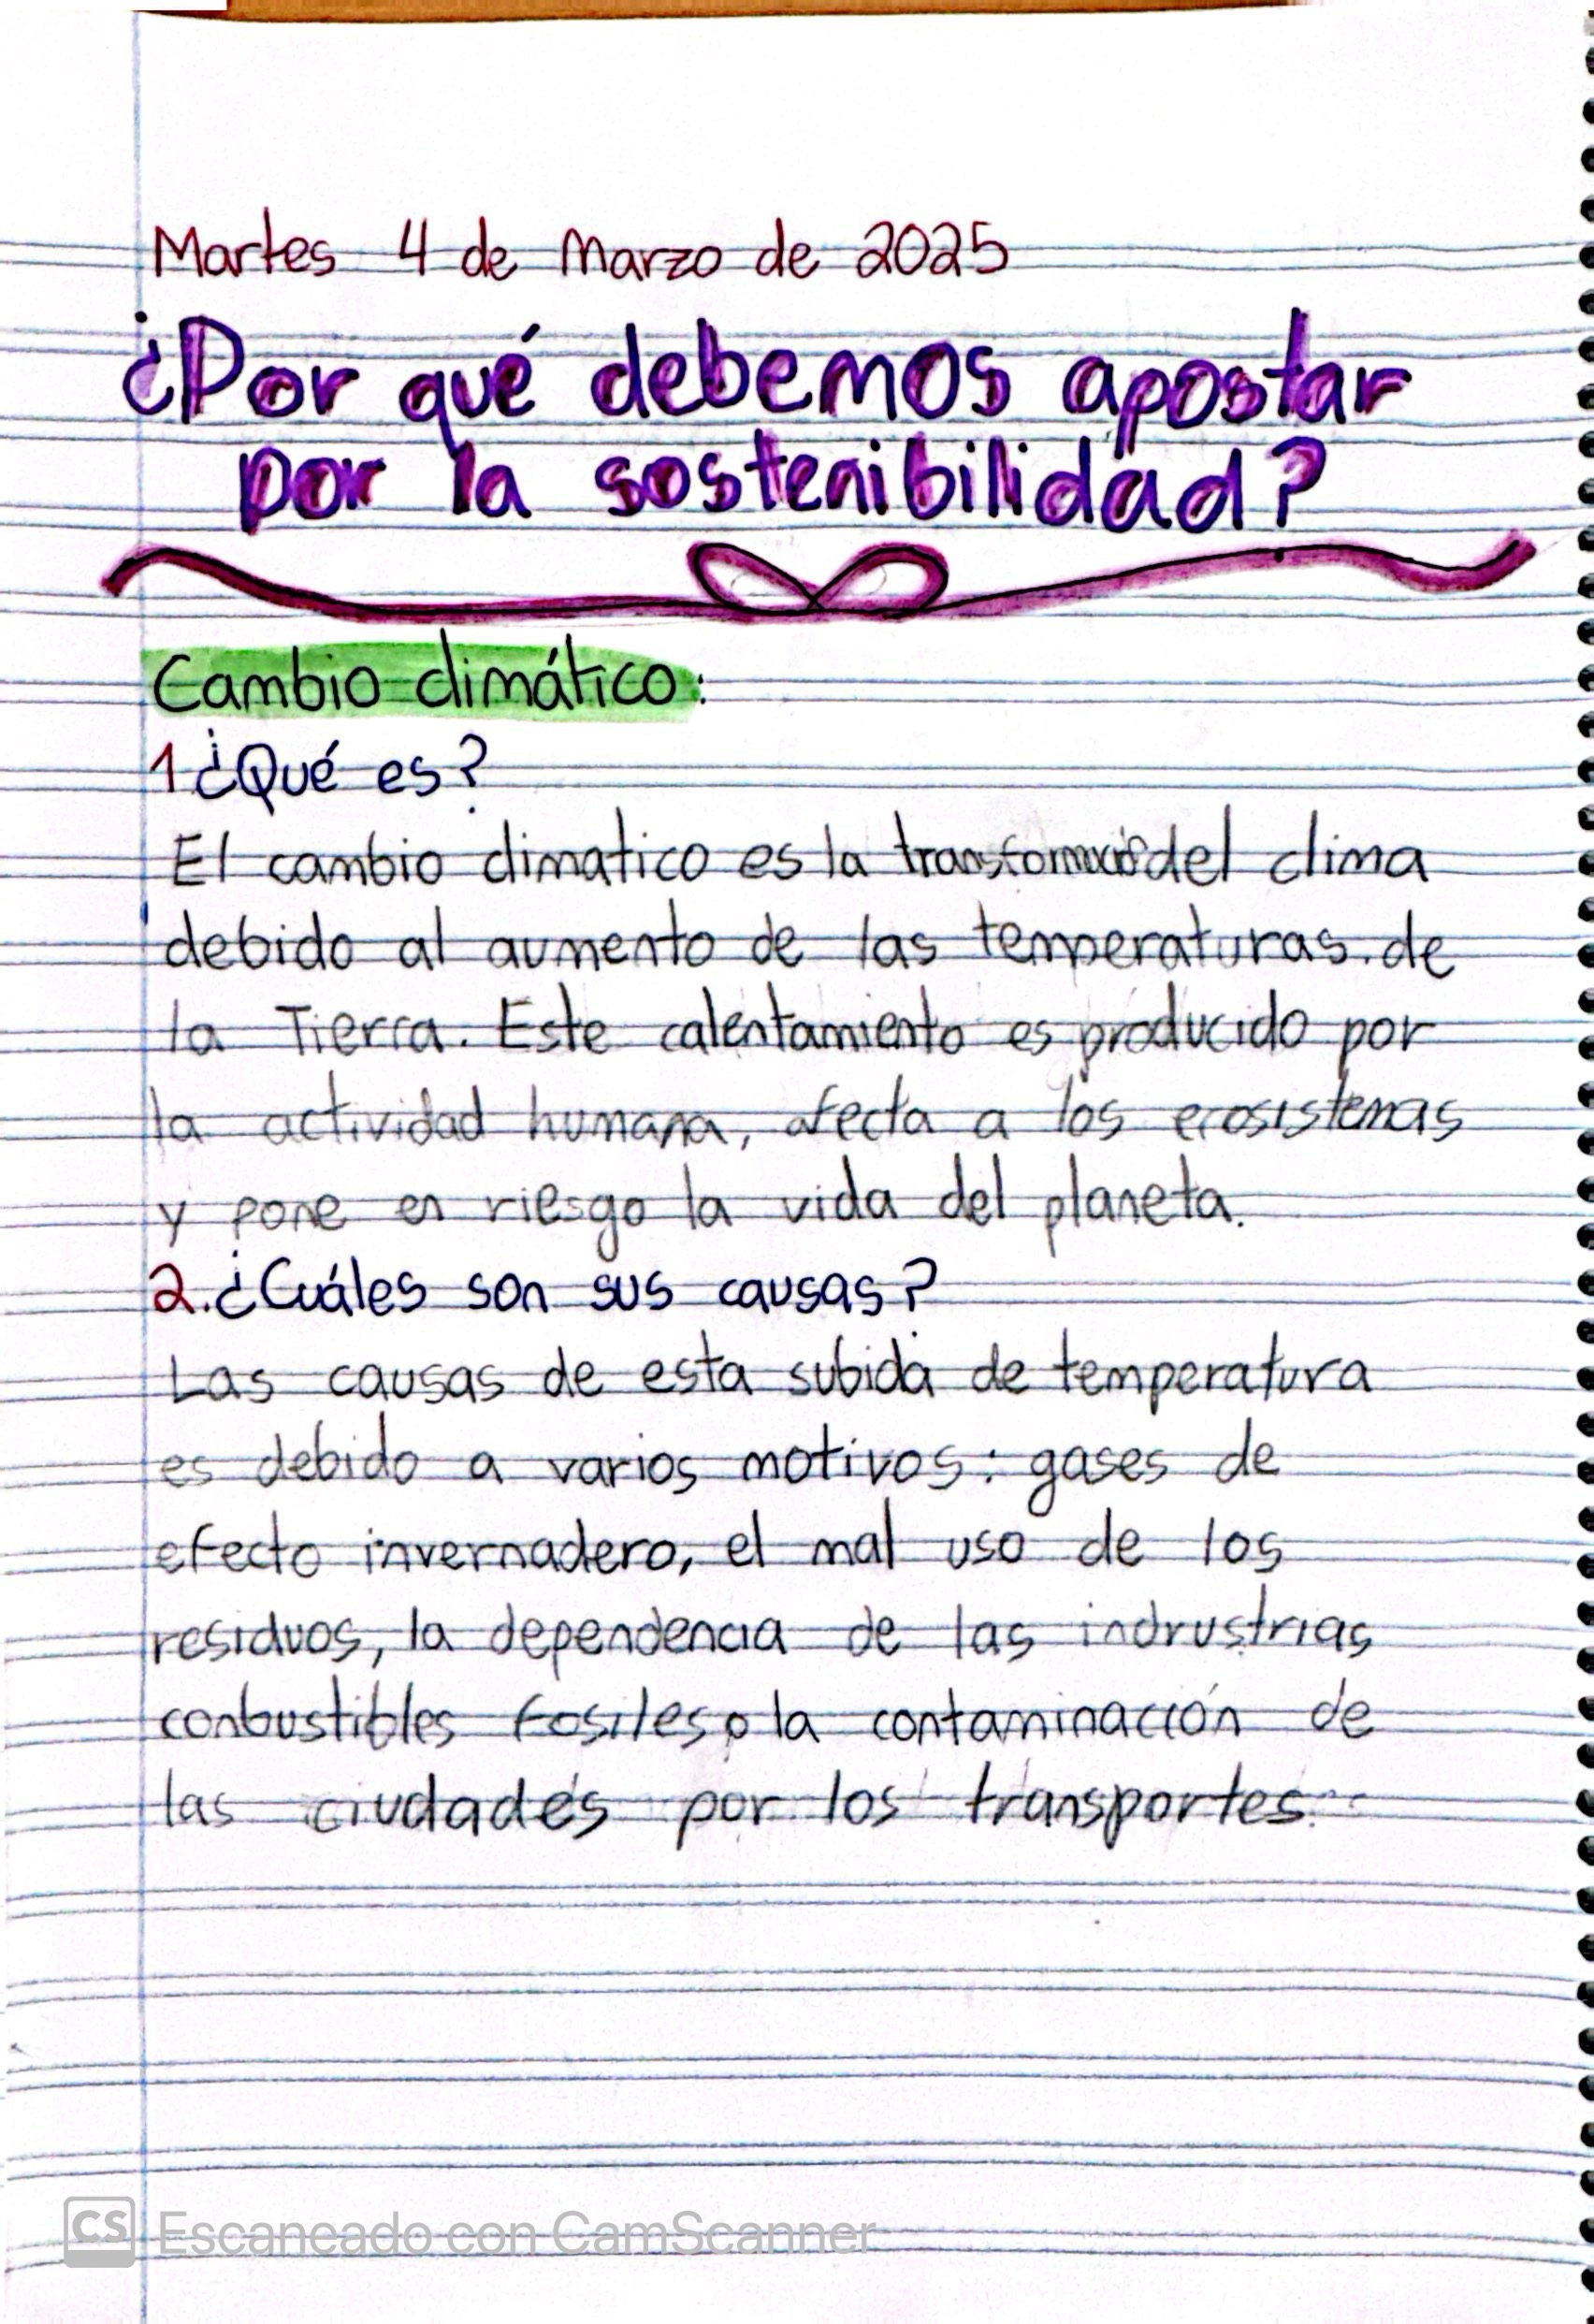 Martes 4 de Marzo de 2025
¿Por qué debemos apostar
por la sostenibilidad?
Cambio climático:
1 ¿Qué es?
El cambio climatico es la del clima
debido al aumento de las temperaturas. de
la Tierra. Este calentamiento es producido por
la actividad humana, afecta a los ecosistemas
y pone en riesgo la vida del planeta.
2. ¿Cuáles son sus causas?
Las causas de esta subida de temperatura
es debido a varios motivos: gases de
efecto invernadero, el mal uso de los
residuos, la dependencia de las indrustrias
conbustibles fosiles o la contaminación de
las ciudades por los transportes.
CS Escaneado con CamScanner